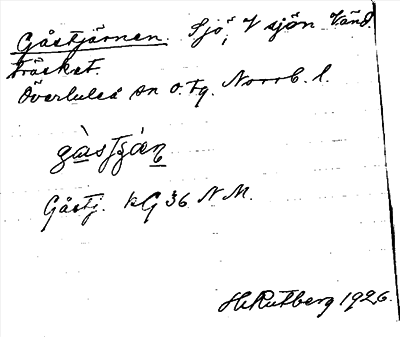 Gåstjärnen. Sjö, V sjön Vänd-
träsket.
Överluleå sn o. tg. Norrb. l.
gåstjän
Gåstj. kG 36 N M.
H. Rutberg 1926.